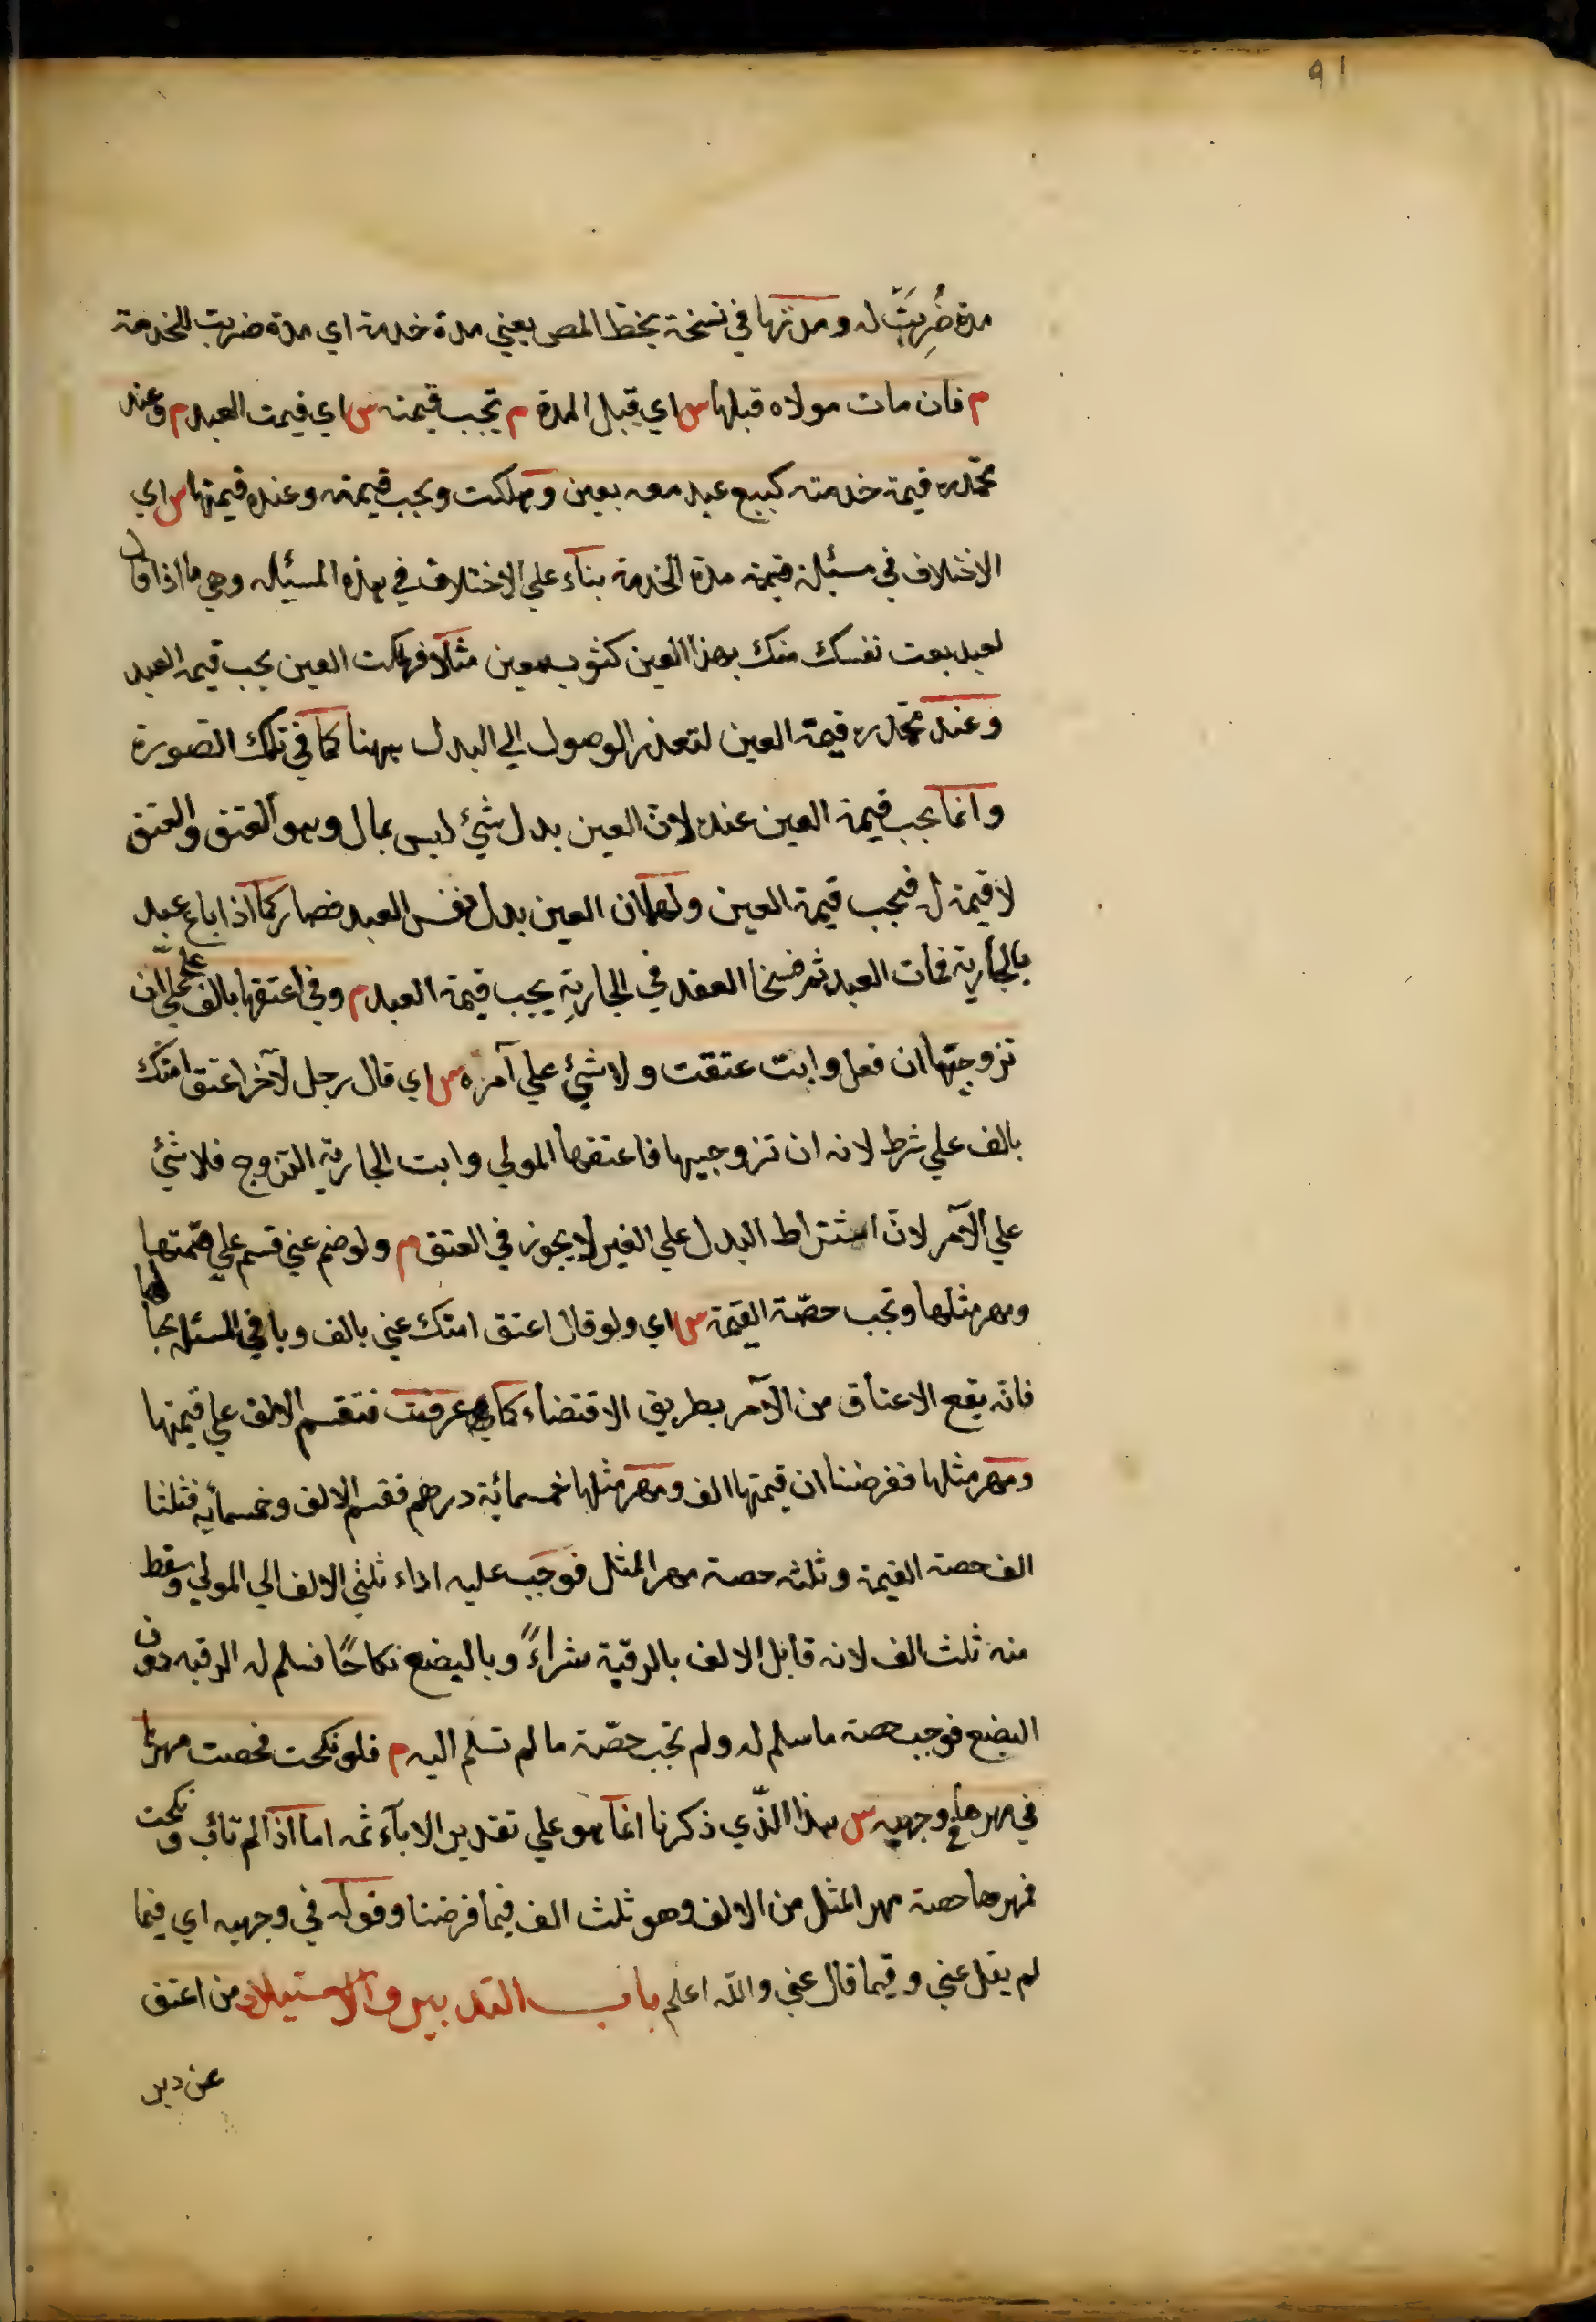 91
مدة ضُرِبَتْ له ومدتها في نسخة بخط المص يعني مدة خدمة اي مدة ضربت للخدمة
م فان مات مولاه قبلها س اي قبل المدة م تجب قيمته س اي قيمت العبد م وعند
محمد ره قيمة خدمته كبيع عبد معه بعين وهلكت ويجب قيمته وعنده قيمتها س اي
الاختلاف في مسئلة قيمة مدة الخدمة بناء علي الاختلاف في هذه المسئله وهي ما اذا قال
لعبد بعت نفسك منك بهذا العين كثوب معين مثلا فهلكت العين يجب قيمه العبد
وعند محمد ره قيمة العين لتعذر الوصول الي البدل ههنا كما في تلك الصورة
وانما يجب قيمة العين عنده لان العين بدل شئ ليس بمال وهو العتق والعتق
لا قيمة له فيجب قيمة العين ولهما ان العين بدل نفس العبد فصار كما اذا باع عبد
بالجارية فمات العبد ثم فسخا العقد في الجارية يجب قيمة العبد م وفي اعتقها بالف علي علي ان
تزوجنيها ان فعل وابت عتقت ولا شئ علي آمره س اي قال رجل لآخر اعتق امتك
بالف علي شرط لانه ان تزوجنيها فاعتقها المولي وابت الجارية التزوج فلا شئ
علي الآمر لان اشتراط البدل علي الغير لا يجوز في العتق م ولو ضم عني قسم علي قيمتها
ومهر مثلها وتجب حصّة القيمة س اي ولو قال اعتق امتك عني بالف وباقي المسئلة بحالها
فانه يقع الاعتاق من الآمر بطريق الاقتضاء كما عرفت فتقسم الالف علي قيمتها
ومهر مثلها ففرضنا ان قيمتها الف ومهر مثلها خمسمائة درهم فقسم الالف وخمسمائة فثلثا
الف حصة القيمة وثلثه حصة مهر المثل فوجب عليه اداء ثلثي الالف الي المولي وسقط
منه ثلث الف لانه قابل الالف بالرقبة شراءً وبالبضع نكاحًا فسلم له الرقبه دون
البضع فوجب حصة ما سلم له ولم تجب حصّة ما لم تسلم اليه م فلو نكحت فحصت مهرها
في مهرها في وجهيه س هذا الذّي ذكرنا انما هو علي تقدير الابآء ثمه اما اذا لم تاب ونكحت
فمهرها حصة مهر المثل من الالف وهو ثلث الف فيما فرضنا وقوله في وجهيه اي فيما
لم يقل عني وفيما قال عني والله اعلم باب التدبير والاستيلاد من اعتق
عن دبر